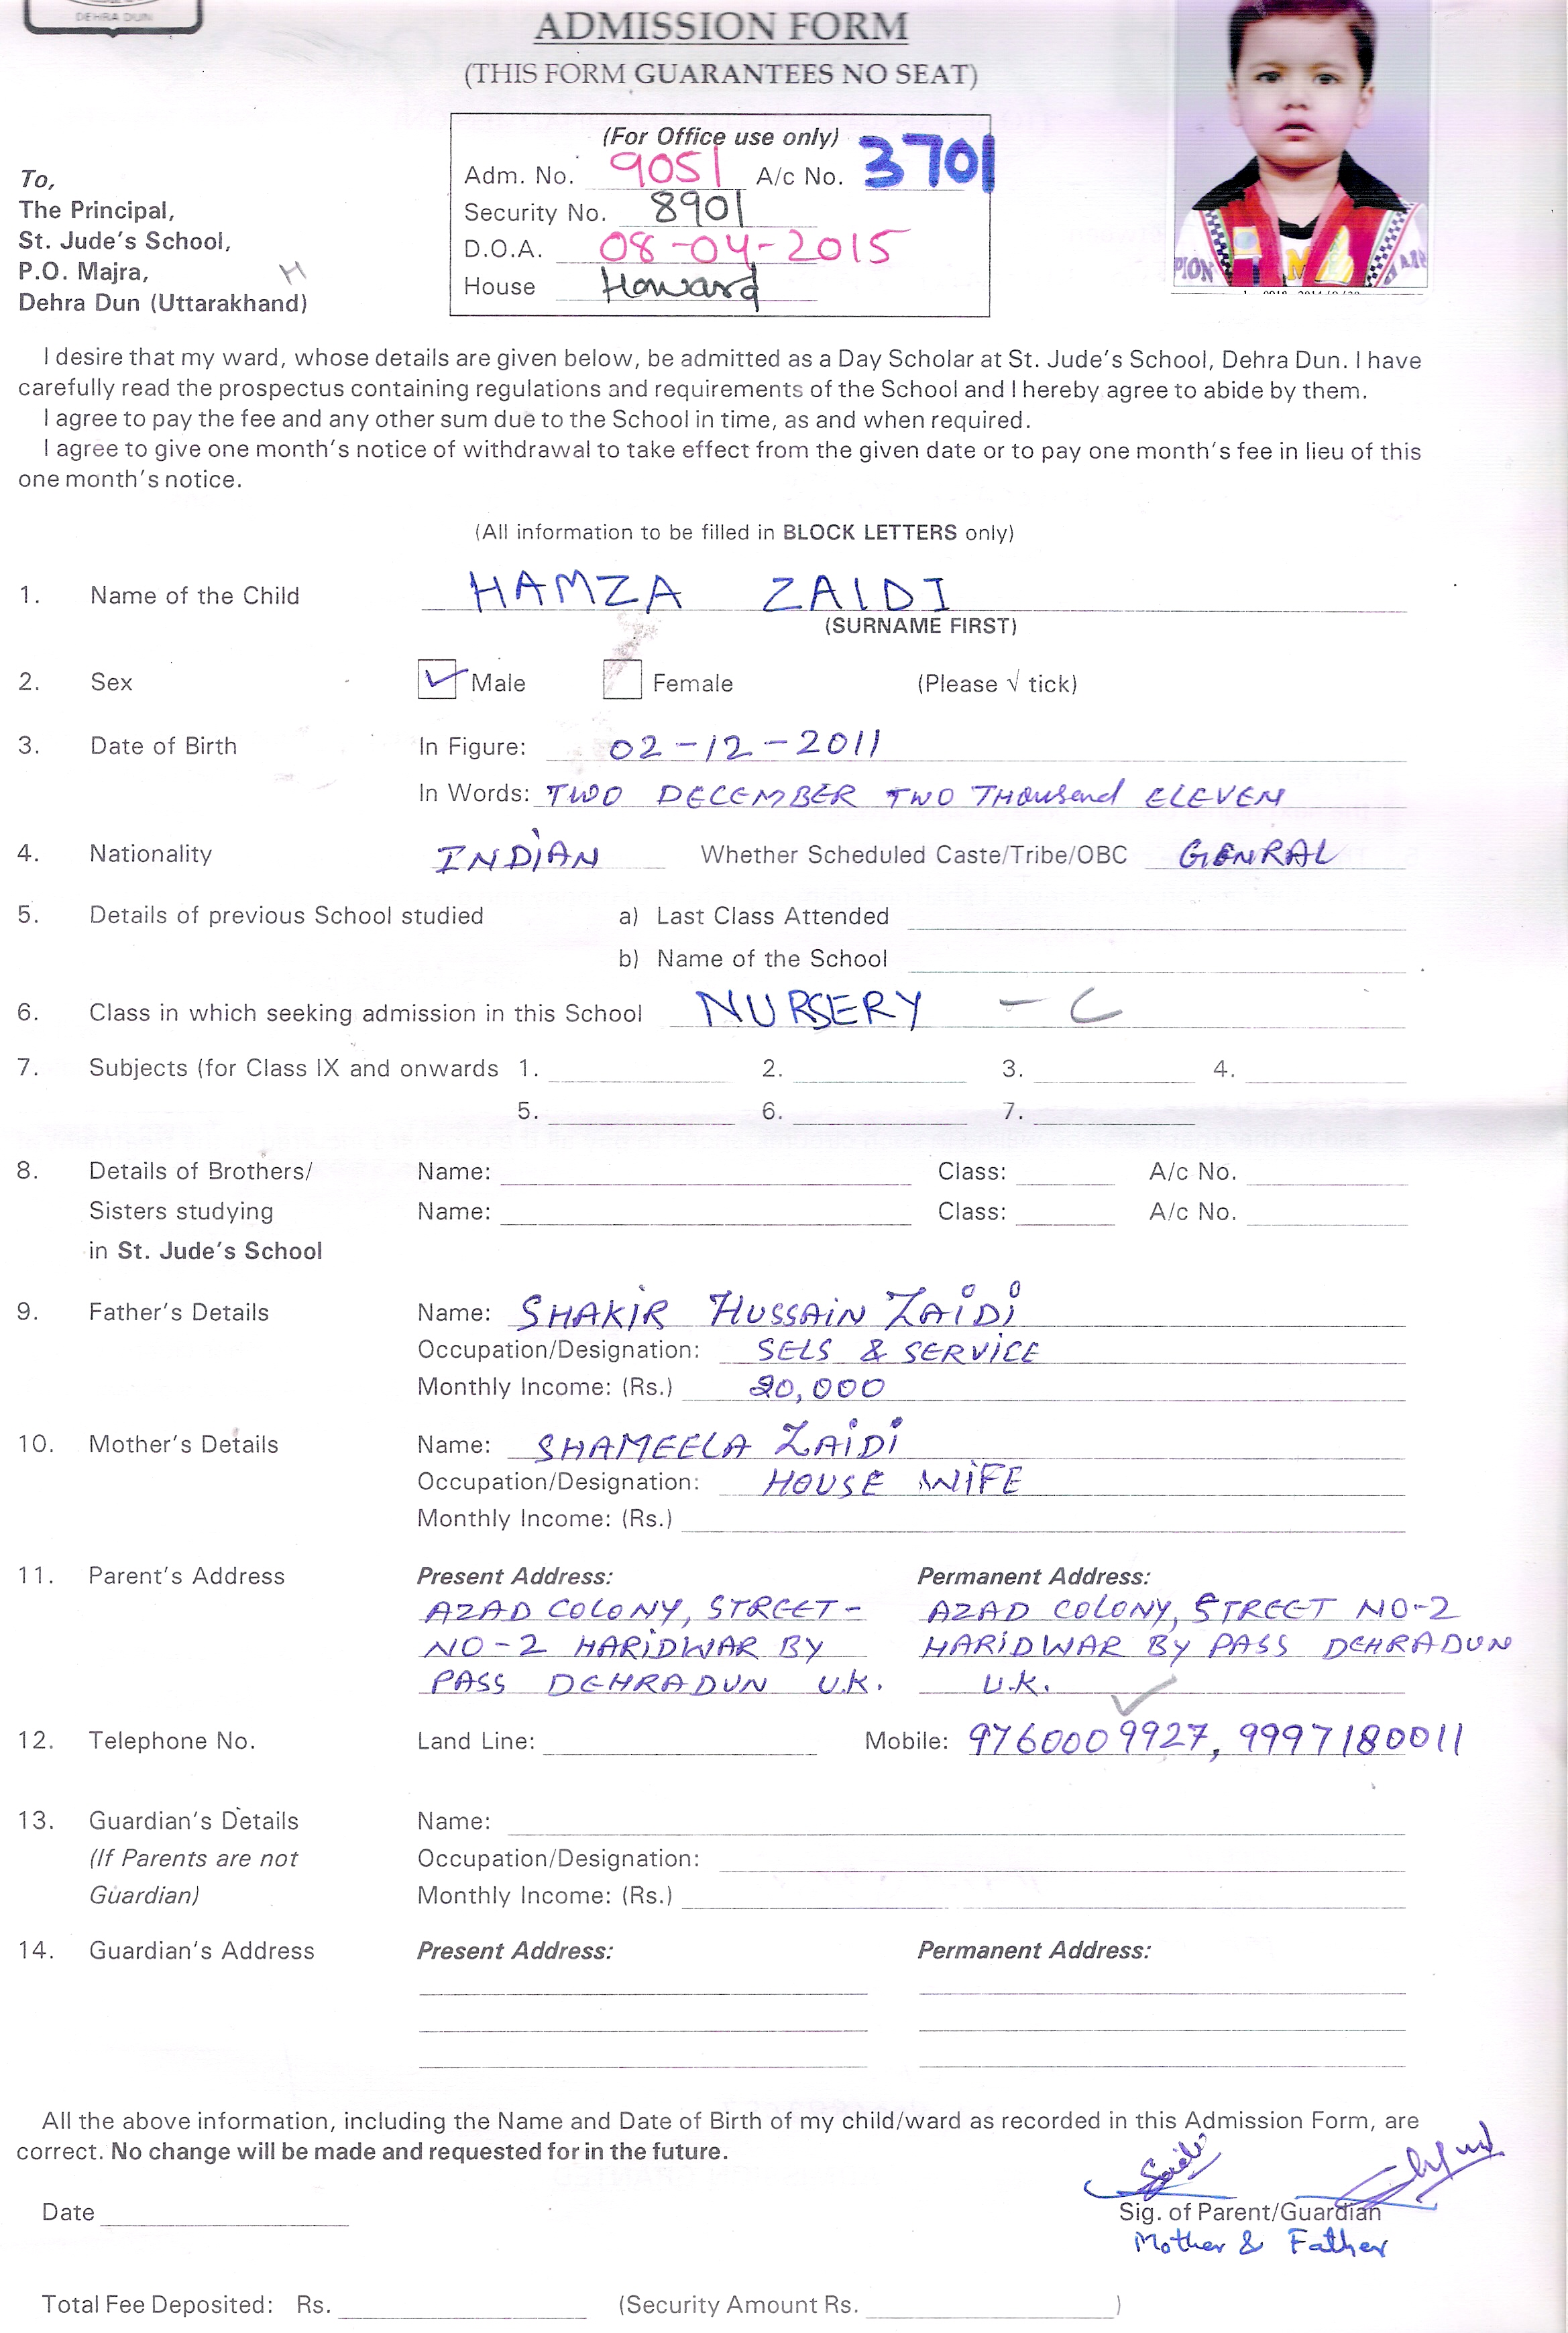 DEHRA DUN
ADMISSION FORM
(THIS FORM GUARANTEES NO SEAT)
(For Office use only)
Adm. No. 9051 A/c No. 3701
Security No. 8901
D.O.A. 08-04-2015
House Howard
To,
The Principal,
St. Jude's School,
P.O. Majra, H
Dehra Dun (Uttarakhand)
PION M
I desire that my ward, whose details are given below, be admitted as a Day Scholar at St. Jude's School, Dehra Dun. I have
carefully read the prospectus containing regulations and requirements of the School and I hereby agree to abide by them.
I agree to pay the fee and any other sum due to the School in time, as and when required.
I agree to give one month's notice of withdrawal to take effect from the given date or to pay one month's fee in lieu of this
one month's notice.
(All information to be filled in BLOCK LETTERS only)
1. Name of the Child HAMZA ZAIDI
(SURNAME FIRST)
2. Sex Male Female (Please √ tick)
3. Date of Birth In Figure: 02-12-2011
In Words: TWO DECEMBER TWO THousand ELEVEN
4. Nationality INDIAN Whether Scheduled Caste/Tribe/OBC GENRAL
5. Details of previous School studied a) Last Class Attended
b) Name of the School
6. Class in which seeking admission in this School NURSERY - C
7. Subjects (for Class IX and onwards 1. 2. 3. 4.
5. 6. 7.
8. Details of Brothers/ Name: Class: A/c No.
Sisters studying Name: Class: A/c No.
in St. Jude's School
9. Father's Details Name: SHAKIR HUSSAIN ZAIDI
Occupation/Designation: SELS & SERVICE
Monthly Income: (Rs.) 20,000
10. Mother's Details Name: SHAMEELA ZAIDI
Occupation/Designation: HOUSE WIFE
Monthly Income: (Rs.)
11. Parent's Address Present Address: Permanent Address:
AZAD COLONY, STREET- AZAD COLONY, STREET NO-2
NO-2 HARIDWAR BY HARIDWAR BY PASS DEHRADUN
PASS DEHRADUN U.K. U.K.
12. Telephone No. Land Line: Mobile: 9760009927, 9997180011
13. Guardian's Details Name:
(If Parents are not Occupation/Designation:
Guardian) Monthly Income: (Rs.)
14. Guardian's Address Present Address: Permanent Address:
All the above information, including the Name and Date of Birth of my child/ward as recorded in this Admission Form, are
correct. No change will be made and requested for in the future.
Date Sig. of Parent/Guardian
Mother & Father
Total Fee Deposited: Rs. (Security Amount Rs. )